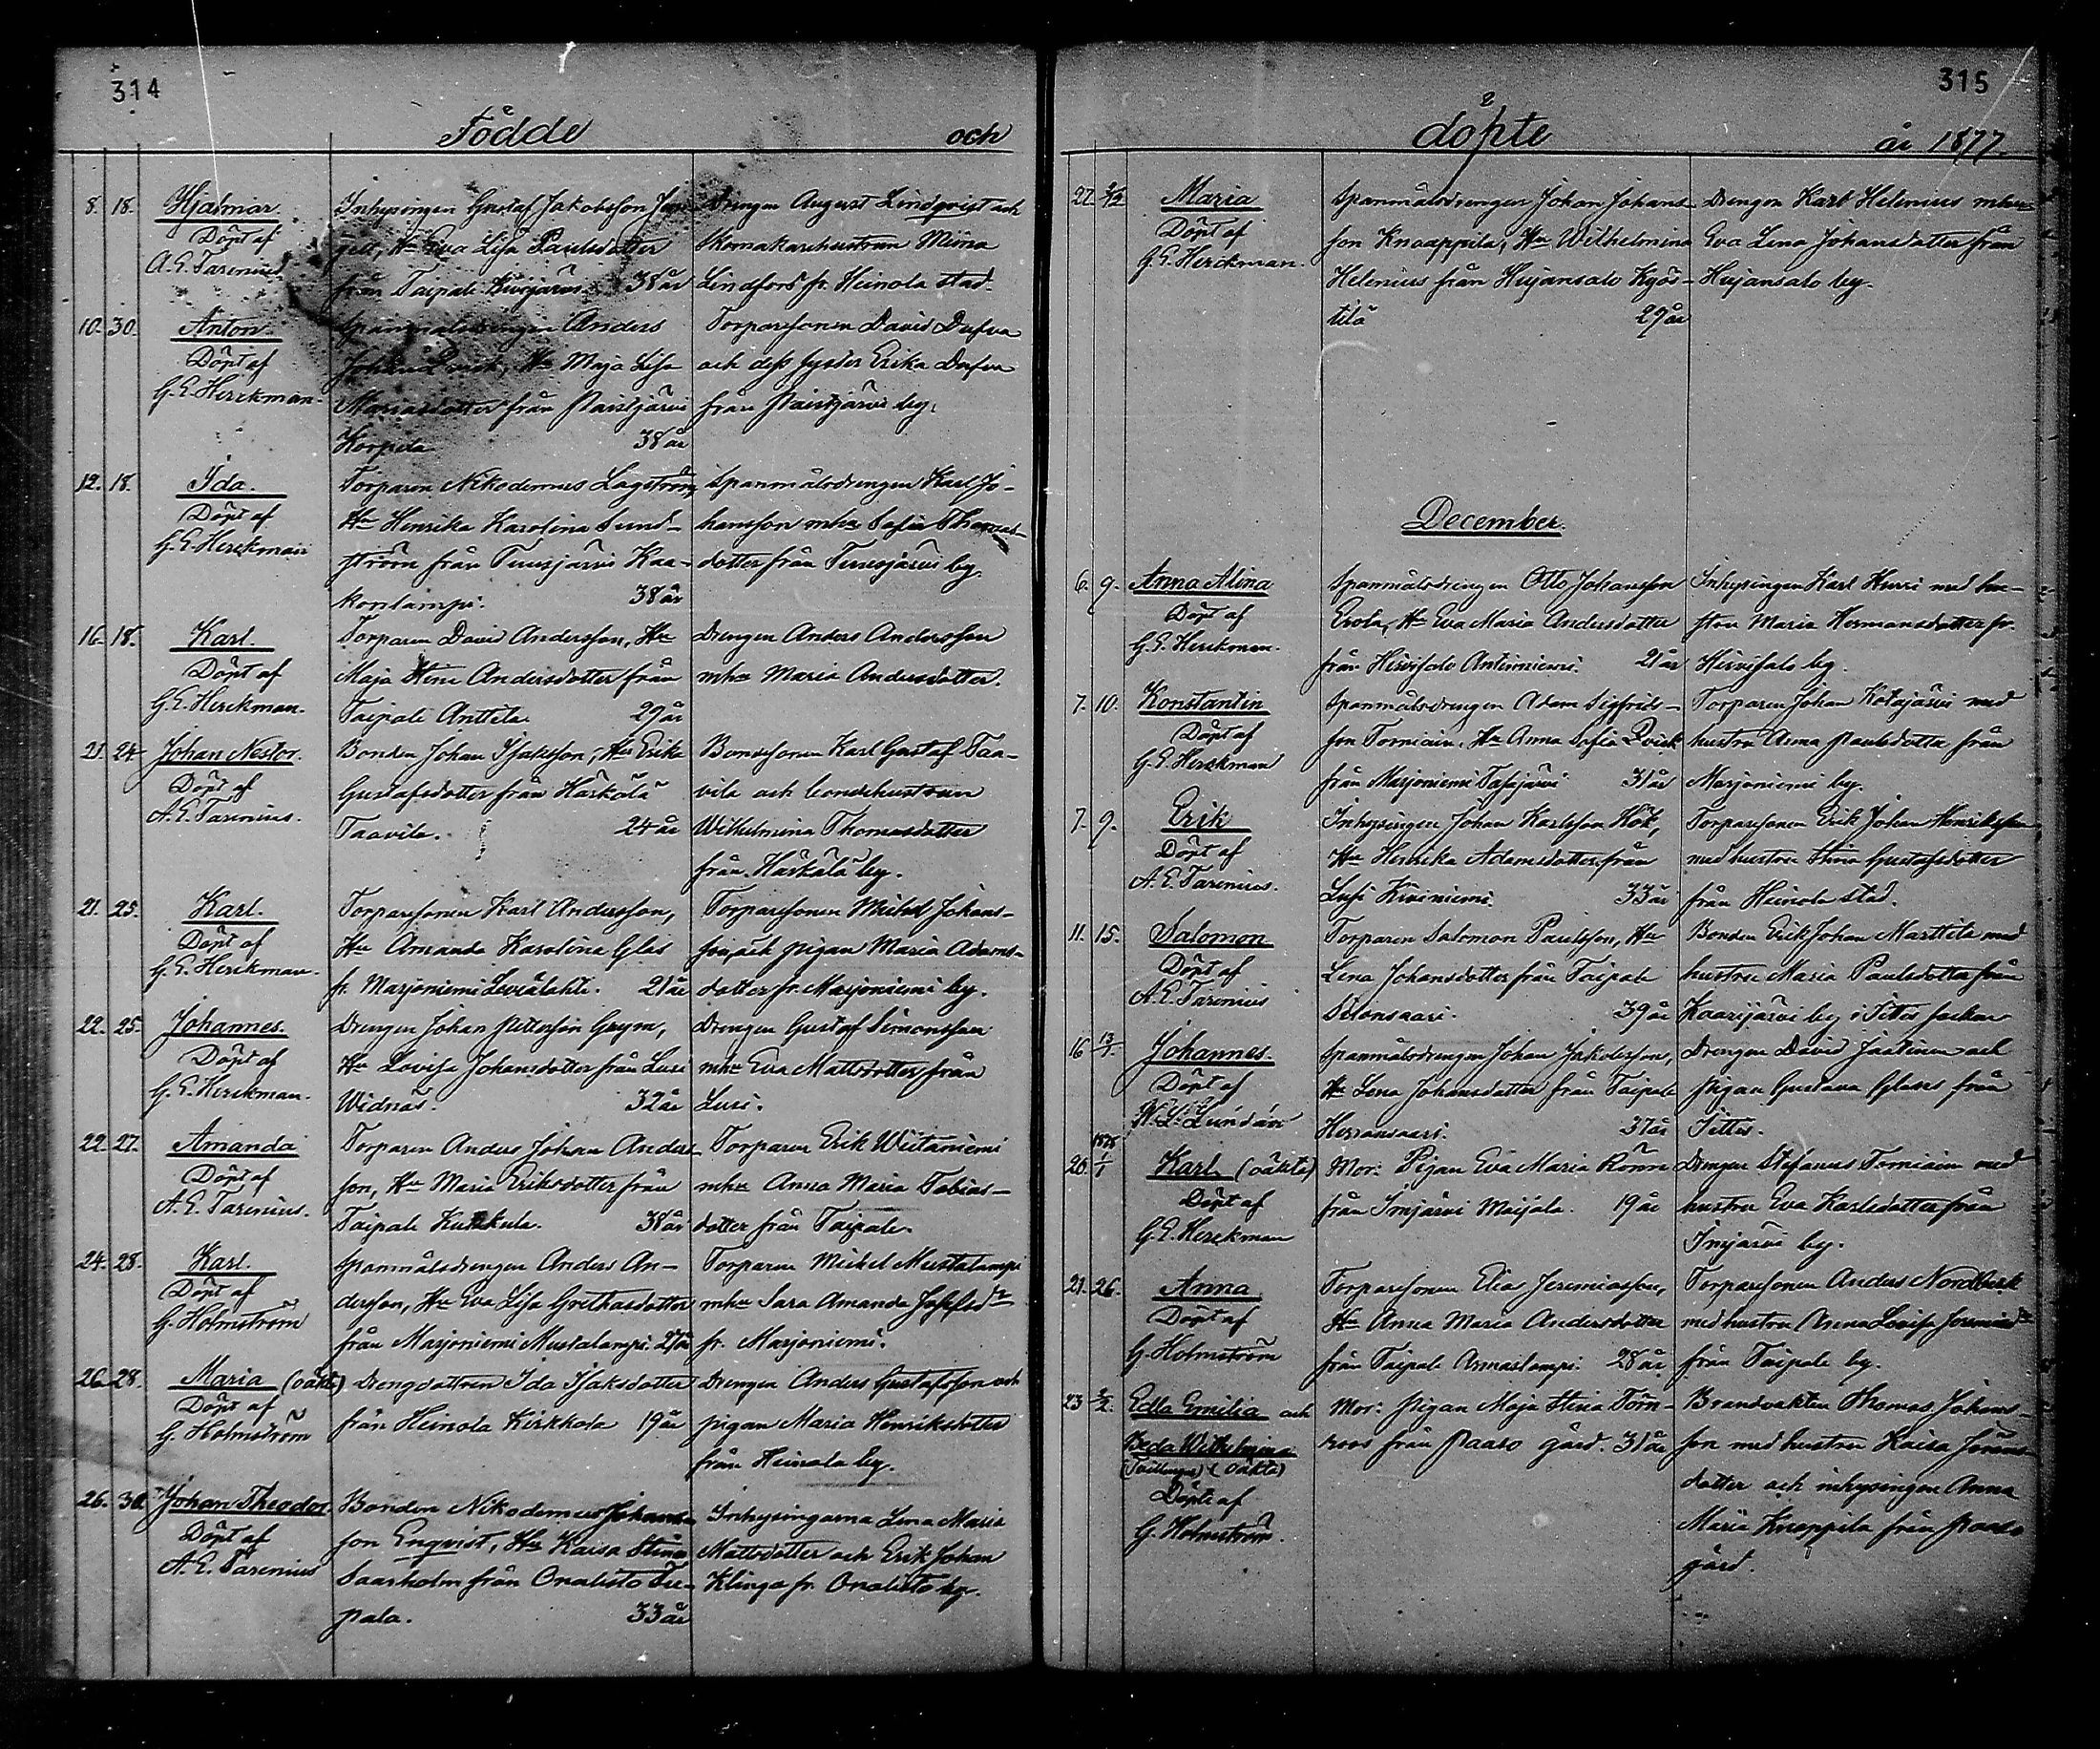 314
Födde och
8. 18. Hjalmar
Döpt af
A. E. Tarenius
Inhysingen Gustaf Jakobsson
Hu Eva Lisa Paulsdotter
från Taipale Kivijärvi 38 år
Drengen August Lindqvist och
Skomakarehustrun Mina
Lindfors fr. Heinola stad.
10. 30. Anton.
Döpt af
G. E. Herckman.
Spanmålsdrengen Anders
Hu Maja Lisa
från Paistjärvi
Korpela 38 år
Torparesonen David Dufva
och dess syster Erika Dufva
från Paistjärvi by.
12. 18. Ida.
Döpt af
G. E. Herckman
Torparen Nikodemus Lagström,
Hu Henrika Karolina Sund-
ström från Tuusjärvi Kaa-
konlampi. 38 år
Spanmålsdrengen Karl Jo-
hansson mhu Sofia Thomas-
dotter från Tuusjärvi by.
16. 18. Karl.
Döpt af
G. E. Herckman.
Torparen David Andersson, Hu
Maja Stina Andersdotter från
Taipale Anttila. 29 år
Drengen Anders Andersson
mhu Maria Andersdotter.
21. 24 Johan Nestor.
Döpt af
A. E. Tarenius.
Bonden Johan Isaksson, Hu Erika
Gustafsdotter från Härkälä
Taavila. 24 år
Bondesonen Karl Gustaf Taa-
vila och bondehustrun
Wilhelmina Thomasdotter
från Härkälä by.
21. 25. Karl.
Döpt af
G. E. Herckman.
Torparesonen Karl Andersson,
Hu Amanda Karolina Glas
fr. Marjoniemi Leviälahti. 21 år
Torparesonen Mickel Johans-
son och pigan Maria Adams-
dotter fr. Marjoniemi by.
22. 25. Johannes.
Döpt af
G. E. Herckman.
Drengen Johan Pettersson Grym,
Hu Lovisa Johansdotter från Lusi
Widnäs. 32 år
Drengen Gustaf Simonsson
mhu Eva Mattsdotter från
Lusi.
22. 27. Amanda
Döpt af
A. E. Tarenius.
Torparen Anders Johan Anders-
son, Hu Maria Eriksdotter från
Taipale Kukkula. 38 år
Torparen Erik Wiitaniemi
mhu Anna Maria Tobias-
dotter från Taipale.
24. 28. Karl.
Döpt af
G. Holmström
Spanmålsdrengen Anders An-
dersson, Hu Eva Lisa Grethasdotter
från Marjoniemi Mustalampi. 27 år
Torparen Mickel Mustalampi
mhu Sara Amanda Josefsdr
fr. Marjoniemi.
26. 28. Maria (oäkta)
Döpt af
G. Holmström
Drengdottren Ida Isaksdotter
från Heinola Kirkkola 19 år
Drengen Anders Gustafsson och
pigan Maria Henriksdotter
från Heinola by.
26. 30. Johan Theodor
Döpt af
A. E. Tarenius
Bonden Nikodemus Johans-
son Enqvist, Hu Kaisa Stina
Saarholm från Onalisto
pala. 33 år
Inhysingarna Lena Maria
Mattsdotter och Erik Johan
Klinga fr. Onalisto by.
315
döpte år 1877.
27. 2/12 Maria
Döpt af
G. E. Herckman.
Spanmålsdrengen Johan Johans-
son Knaappila, Hu Wilhelmina
Helenius från Hujansalo Kyös-
tilä 29 år
Drengen Karl Helenius mhu
Eva Lena Johansdotter från
Hujansalo by.
December.
6. 9. Anna Alina
Döpt af
G. E. Herckman.
Spanmålsdrengen Otto Johansson
Erola, Hu Eva Maria Andersdotter
från Hirvisalo Anttinniemi. 21 år
Inhysingen Karl Hurri med hu-
stru Maria Hermansdotter fr.
Hirvisalo by.
7. 10. Konstantin
Döpt af
G. E. Herckman
Spanmålsdrengen Adam Sigfrids-
son Torniain, Hu Anna Sofia Qvick
från Marjoniemi 31 år
Torparen Johan Kotajärvi med
hustru Anna Paulsdotter från
Marjoniemi by.
7. 9. Erik
Döpt af
A. E. Tarenius.
Inhysingen Johan Karlsson Kök,
Hu Henrika Adamsdotter från
Lusi Kiviniemi. 33 år
Torparesonen Erik Johan Henriksson
med hustru Stina Gustafsdotter
från Heinola stad.
11. 15. Salomon
Döpt af
A. E. Tarenius
Torparen Salomon Paulsson, Hu
Lena Johansdotter från Taipale
Sitonsaari. 39 år
Bonden Erik Johan Marttila med
hustru Maria Paulsdotter från
Kaarijärvi by i Sittis socken
16 13/1. Johannes.
Döpt af
Lundán
Spanmålsdrengen Johan Jakobsson,
Hu Lena Johansdotter från Taipale
Herransaari. 37 år
Drengen David Jaatinen och
pigan Gustava Glases från
Sittis.
20. 1878 1/1 Karl (oäkta)
Döpt af
G. E. Herckman
Mor: Pigan Eva Maria Rönn
från Imjärvi Maijala. 19 år
Drengen Stefanus Torniain med
hustru Eva Karlsdotter från
Imjärvi by.
21. 26. Anna
Döpt af
G. Holmström
Torparesonen Elias Jeremiasson,
Hu Anna Maria Andersdotter
från Taipale Armaslampi. 28 år
Torparesonen Anders Nordberk
med hustru Anna Lovisa Jeremiasdr
från Taipale by.
23 2/2. Edla Emilia och
Beda Wilhelmina
(Tvillingar) (oäkta)
Döpte af
G. Holmström.
Mor: Pigan Maja Stina Törn-
roos från Paaso gård. 31 år
Brandvakten Thomas Johans-
son med hustru Kaisa Jörans-
dotter och inhysingen Anna
Maria Knappila från Paaso
gård.